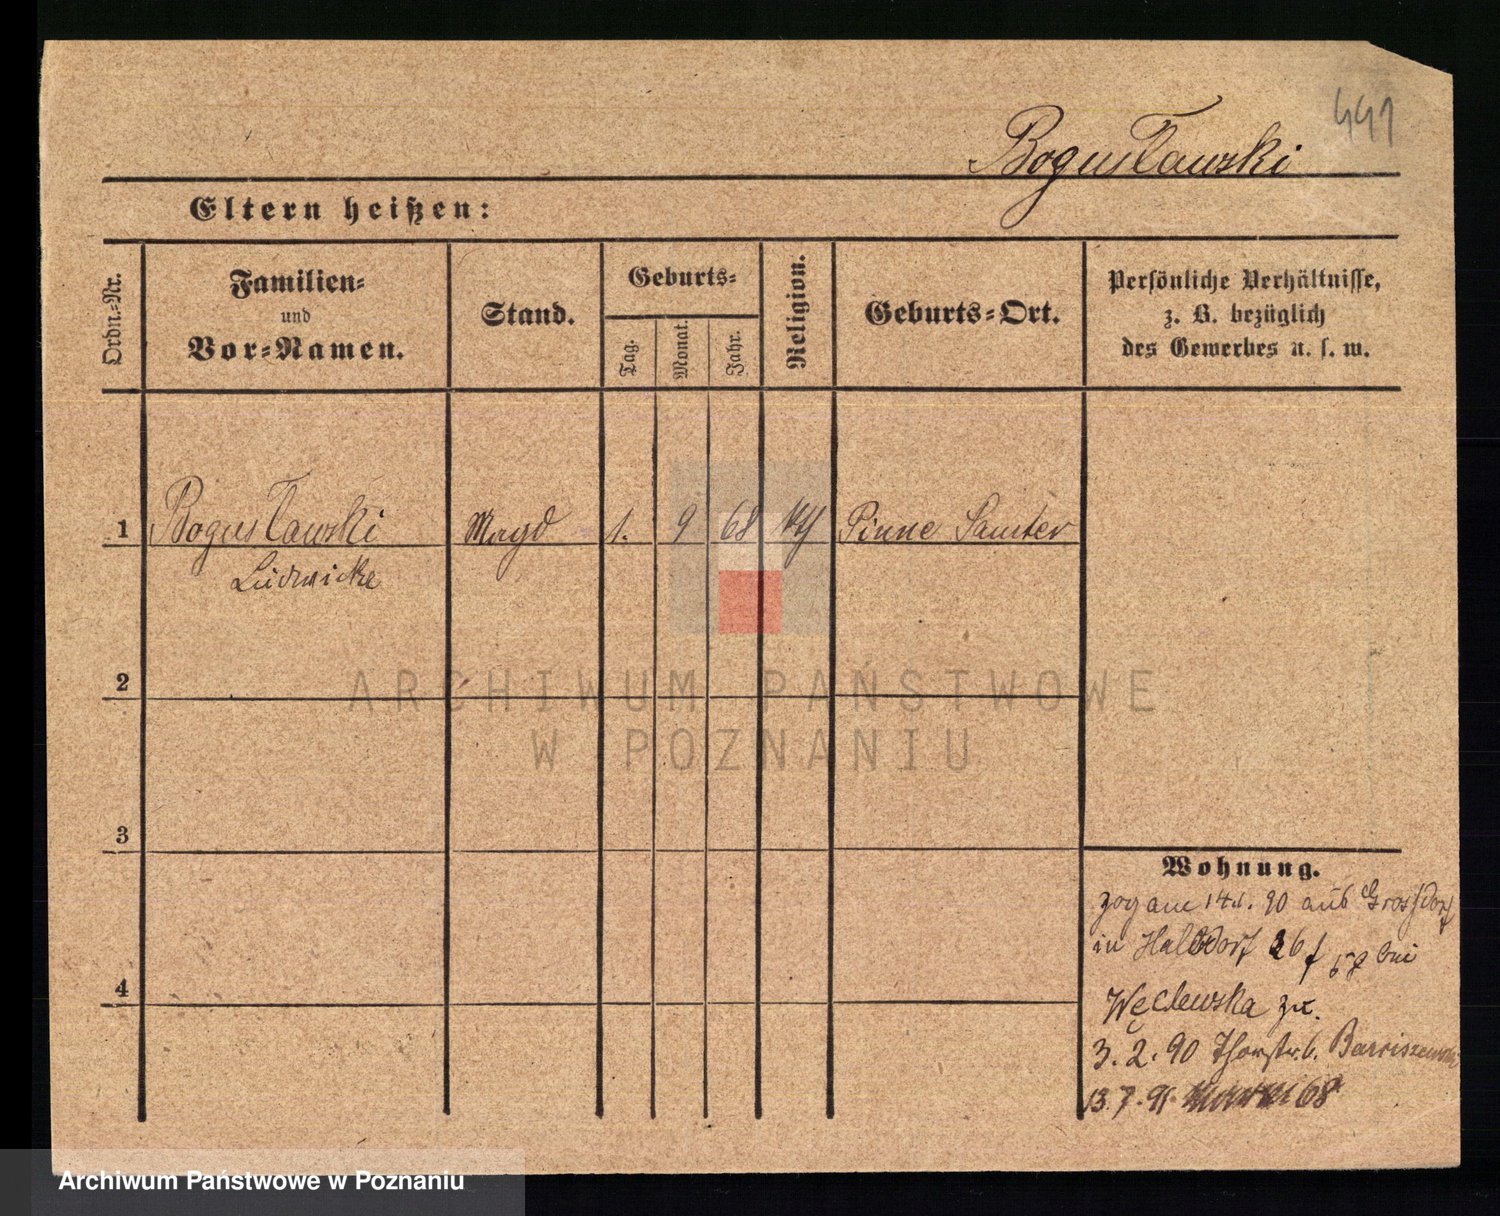 441
Bogusławski
Eltern heißen:
Ordn.-Nr.
Familien-
und
Vor-Namen.
Stand.
Geburts-
Tag.
Monat.
Jahr.
Religion.
Geburts-Ort.
Persönliche Verhältnisse,
z. B. bezüglich
des Gewerbes u. s. w.
1 Bogusławski Magd 1. 9 68 kth Pinne Samter
Ludwicke
2
3
4
Wohnung.
zog am 14/1. 90 aus Grossdorf
in Halbdorf 26 / 58 bei
Węclewska zu.
3. 2. 90 Thorstr. b.
13. 7. 91. 68
ARCHIWUM PAŃSTWOWE
W POZNANIU
Archiwum Państwowe w Poznaniu